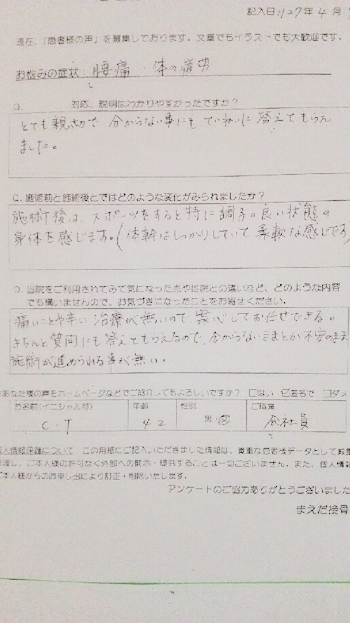 記入日 H27年 4月
現在、「患者様の声」を募集しております。文章でもイラストでも大歓迎です。
お悩みの症状: 腰痛・体の疲労
対応、説明はわかりやすかったですか?
とても親切で、分からない事にもていねいに答えてもらえ
ました。
施術前と施術後とではどのような変化がみられましたか?
施術後は、スポーツをすると特に調子の良い状態の
身体を感じます。(体幹はしっかりしていて柔軟な感じです)
当院をご利用されてみて気になった点や他院との違いなど、どのような内容
でも構いませんので、お気づきになったことをお寄せください。
痛いことや辛い治療が無いので安心してお任せできる。
きちんと質問にも答えてもらえるので、分からないままとか不安のまま
施術が進められる事が無い。
あなた様の声をホームページなどでご紹介してもよろしいですか? □はい □匿名で □ダメ
お名前(イニシャル可) 年齢 性別 ご職業
C.T 42 男 女 会社員
個人情報保護について この用紙にご記入いただきました情報は、貴重な患者様データとして
ご本人様の許可なく外部への開示・提供することは一切ございません。また、個人情報
ご本人様からのお申し出により訂正・削除いたします。
アンケートのご協力ありがとうございました
まえだ接骨